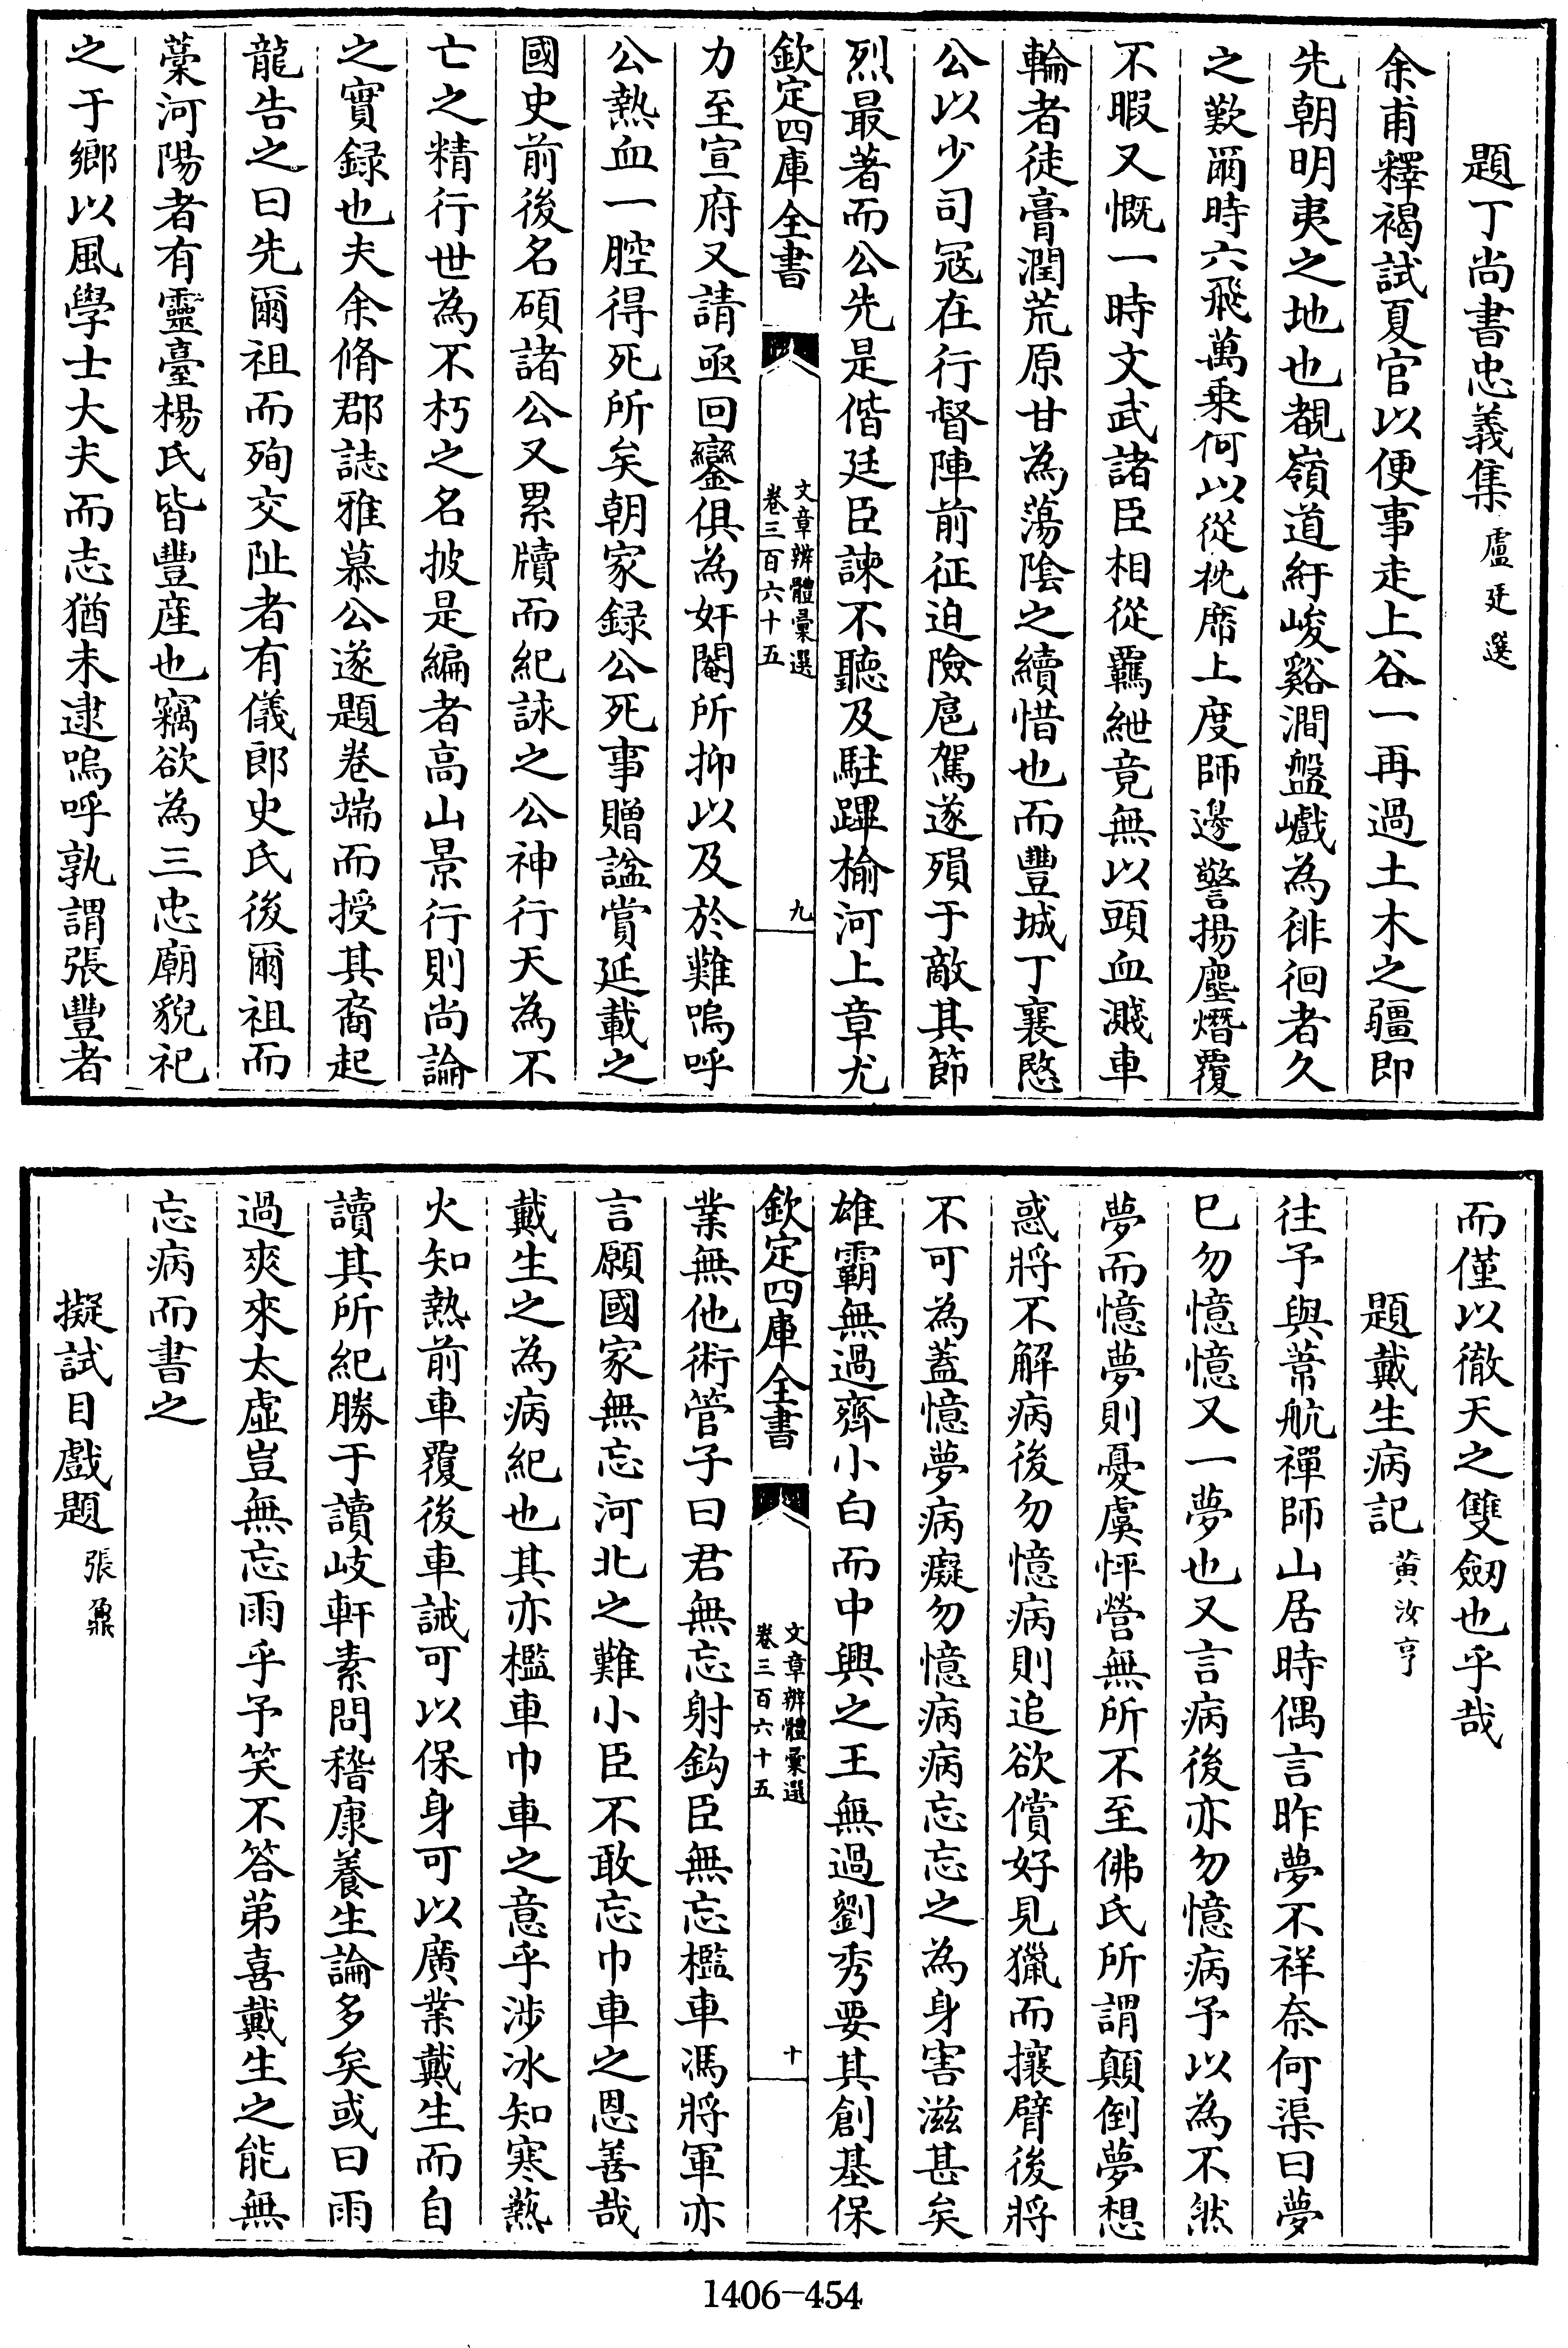 題丁尚書忠義集 盧廷選
余甫釋褐試夏官以便事走上谷一再過土木之疆即
先朝明夷之地也覩嶺道紆峻谿澗盤巇為徘徊者久
之歎爾時六飛萬乗何以從枕席上度師邊警揚塵熸覆
不暇又慨一時文武諸臣相從羈紲竟無以頭血濺車
輪者徒膏潤荒原甘為蕩陰之續惜也而豐城丁襄愍
公以少司冦在行督陣前征迫險扈駕遂殞于敵其節
烈最著而公先是偕廷臣諫不聽及駐蹕榆河上章尤
欽定四庫全書
文章辨體彙選
卷三百六十五
九
力至宣府又請亟回鑾俱為奸閹所抑以及於難嗚呼
公熱血一腔得死所矣朝家録公死事贈諡賞延載之
國史前後名碩諸公又累牘而紀詠之公神行天為不
亡之精行世為不朽之名披是編者高山景行則尚論
之實録也夫余脩郡誌雅慕公遂題卷端而授其裔起
龍告之曰先爾祖而殉交阯者有儀郎史氏後爾祖而
藁河陽者有靈臺楊氏皆豐產也竊欲為三忠廟貎祀
之于鄉以風學士大夫而志猶未逮嗚呼孰謂張豐者
而僅以徹天之雙劒也乎哉
題戴生病記 黄汝亨
往予與葦航禪師山居時偶言昨夢不祥奈何渠曰夢
已勿憶憶又一夢也又言病後亦勿憶病予以為不然
夢而憶夢則憂虞怦營無所不至佛氏所謂顛倒夢想
惑將不解病後勿憶病則追欲償好見獵而攘臂後將
不可為蓋憶夢病癡勿憶病病忘忘之為身害滋甚矣
雄霸無過齊小白而中興之王無過劉秀要其創基保
欽定四庫全書
文章辨體彙選
卷三百六十五
十
業無他術管子曰君無忘射鈎臣無忘檻車馮將軍亦
言願國家無忘河北之難小臣不敢忘巾車之恩善哉
戴生之為病紀也其亦檻車巾車之意乎涉冰知寒爇
火知熱前車覆後車誡可以保身可以廣業戴生而自
讀其所紀勝于讀岐軒素問稽康養生論多矣或曰雨
過爽來太虚豈無忘雨乎予笑不答第喜戴生之能無
忘病而書之
擬試目戲題 張鼐
1406-454